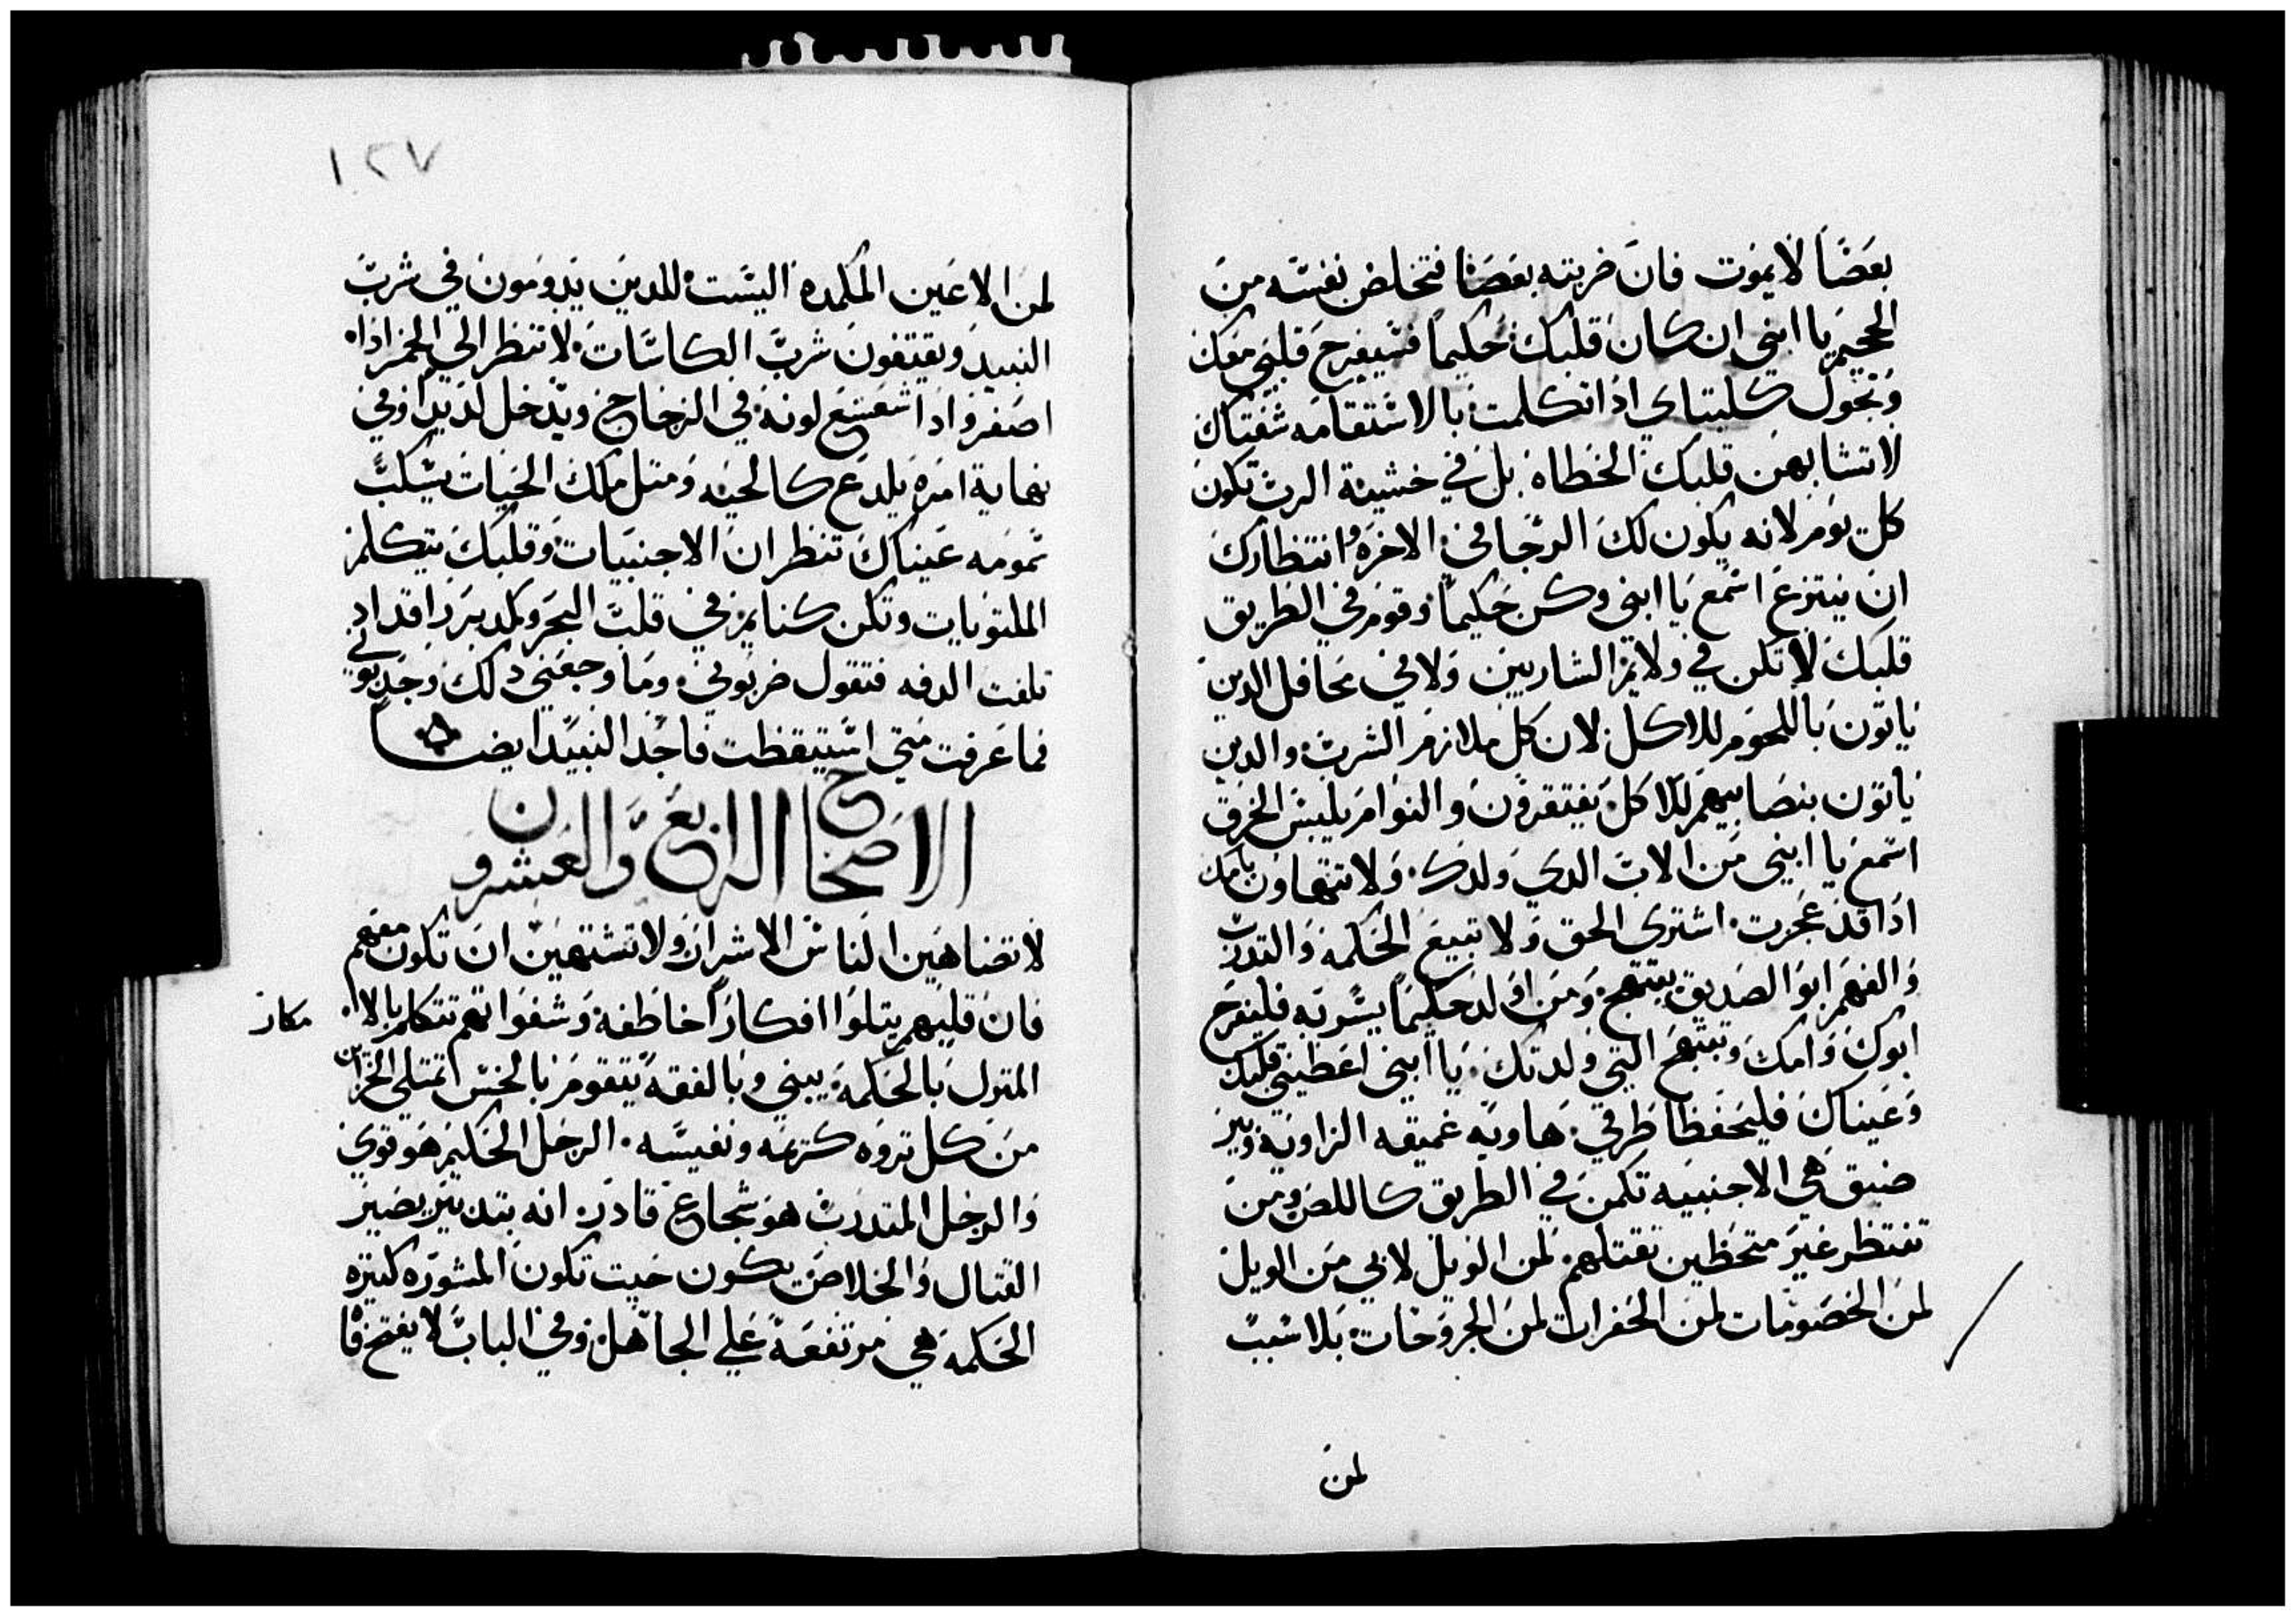 بعَصًا لا يموت فان ضربته بعَصَا فتخلص نفسَه منَ
الجحيم يا ابني ان كان قلبك حَكيماً فسَيفرح قلبي معَك
وَتجول كليتاي اذا تكلمت بالاستقامه شفتاك
لا تشابهن قلبك الخطاه بل في خشيَة الرب تكون
كل يوم لانه يكون لك الرجا في الاخره وانتظارك
ان ينتزع اسمع يا ابني وكن حَكيماً وقوم في الطريق
قلبك لا تكن في ولايم الشاربين ولا في محافل الدين
ياتون باللحوم للاكل لان كل ملازم الشرب والدين
ياتون بنصَابيهم للاكل يفتقرون والنوام يلبس الخرق
اسمع يا ابني من الاب الدي ولدك ولا تتهاون بامك
اذا قد عجزت اشتري الحق ولا تبيع الحكمه والتدرب
والفهم ابو الصديق يبتهج ومن اولد حكيمًا يسَر به فليفرح
ابوك وامك وتبتهج التي ولدتك يا ابني اعطيني قلبك
وعيناك فليحفظا طرقي هاويه عميقه الزاويه وبير
ضيق هي الاجنبيه تكمن في الطريق كاللص ومن
تنتظر غير متحظين تقتلهم لمن الويل لابي من الويل
لمن الخصومات لمن الحفرات لمن الجروحات بلا سبب
لمن
١٢٧
لمن الاعين المكمده اليسَت للدين يدومون في شرب
النبيد ويقتفون شرب الكاسَات لا تنظر الي الخمر اذا
اصفر واذا شعشع لونه في الزجاج ويدخل لديداً وفي
نهاية امره يلدع كالحيه ومتل ملك الحيات يسَكب
سمومه عيناك تنظران الاجنبيات وقلبك يتكلم
الملتويات وتكن كنايم في قلب البحر وكمدبر راقد اد
تلفت الدفه فتقول ضربوني وما وجعني ذلك وجدبوني
فما عرفت متي استيقظت فاجد النبيد ايضاً
الاصحاح الرابع والعشرون
لا تضاهين الناس الاشرار ولا تشتهين ان تكون معهم
فان قلبهم يتلوا افكاراً خاطفه وشفواتهم تتكلم بالا
مكار
المنزل بالحكمه يبني وبالفقه يتقوم بالحس تمتلي الخزاين
من كل تروه كريمه ونفيسَه الرجل الحكيم هو قوي
والرجل المتدرب هو شجاع قادر انه بتدبير يصير
القتال والخلاص يكون حيت تكون المشوره كتيره
الحكمه هي مرتفعة علي الجاهل وفي الباب لا يفتح فا